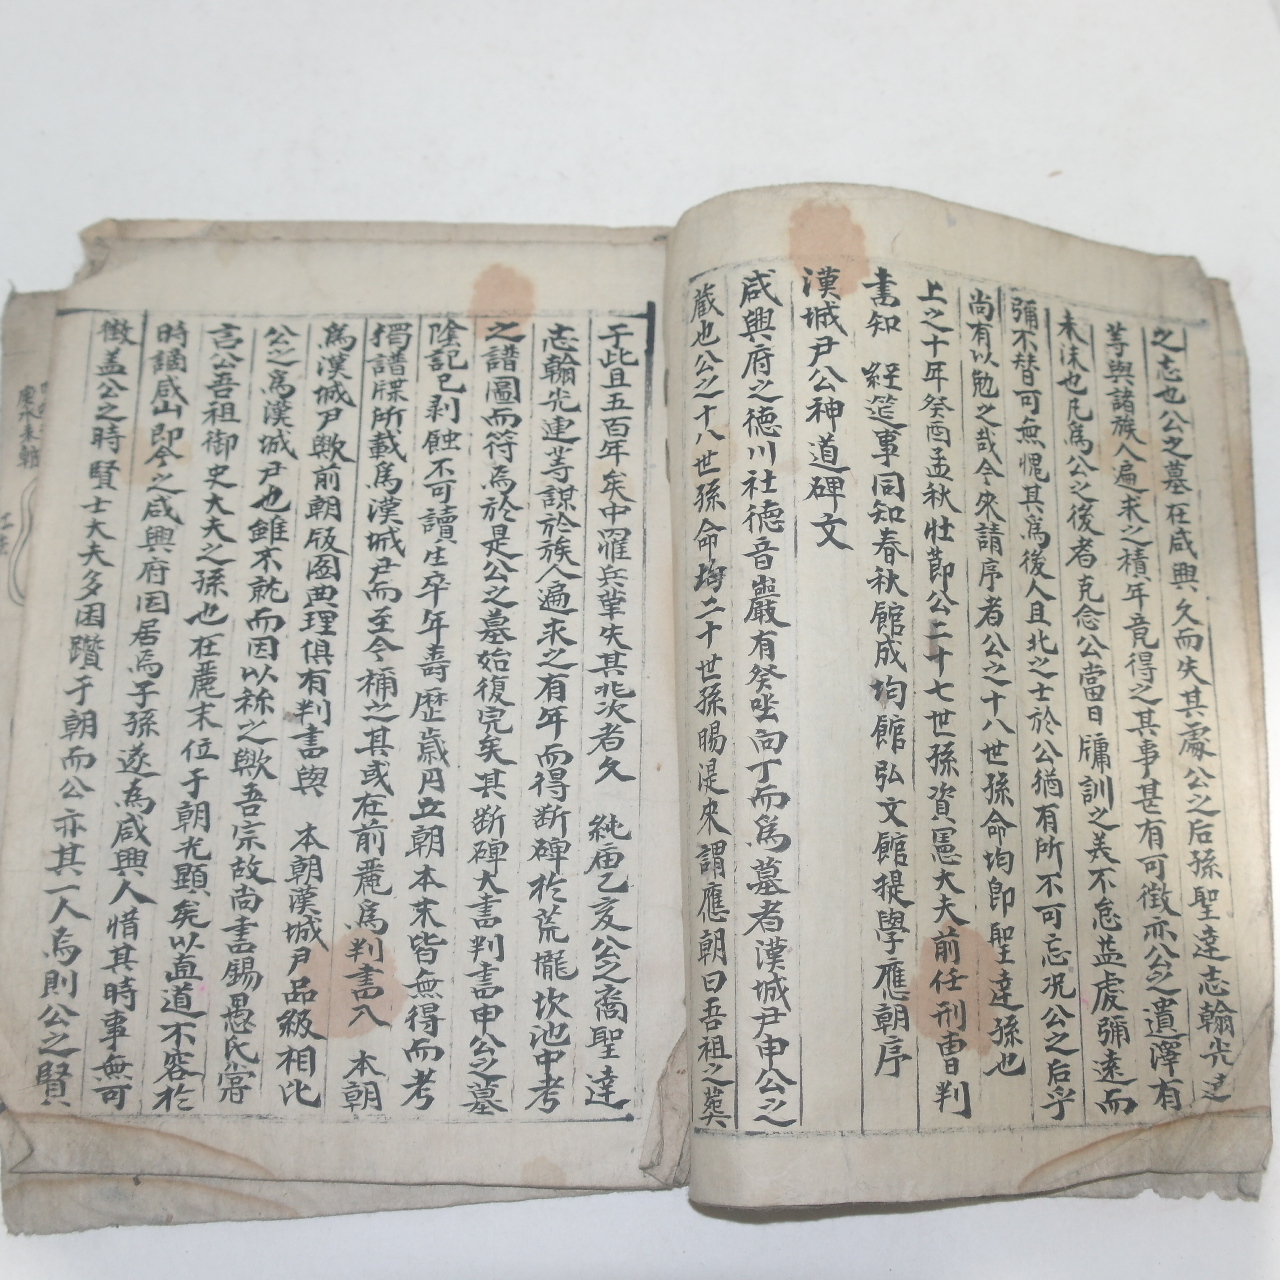 之志也公之墓在咸興久而失其處公之后孫聖達志翰光達
等與諸族人遍求之積年竟得之其事甚有可徵亦公之遺澤有
未沫也凡爲公之後者克念公當日牖訓之美不怠益虔彌遠而
彌不替可無愧其爲後人且北之士於公猶有所不可忘況公之后乎
尚有以勉之哉今來請序者公之十八世孫命均卽聖達孫也
上之十年癸酉孟秋壯節公二十七世孫資憲大夫前任刑曹判
書知 經筵事同知春秋館成均館弘文館提學應朝序
漢城尹公神道碑文
咸興府之德川社德音巖有癸坐向丁而爲墓者漢城尹申公之
藏也公之十八世孫命均二十世孫賜湜來謂應朝曰吾祖之葬
于此且五百年矣中罹兵革失其兆次者久 純庙乙亥公之裔聖達
志翰光連等謀於族人遍求之有年而得断碑於荒壠坎池中考
之譜圖而符焉於是公之墓始復完矣其断碑大書判書申公之墓
陰記已剥蝕不可讀生卒年壽歷歲月立朝本末皆無得而考
獨譜牒所載爲漢城尹而至今稱之其或在前麗爲判書入 本朝
爲漢城尹歟前朝版图典理俱有判書與 本朝漢城尹品級相比
公之爲漢城尹也雖不就而因以称之歟吾宗故尚書錫愚氏嘗
言公吾祖御史大夫之孫也在麗末位于朝光顯矣以直道不容於
時謫咸山即今之咸興府因居焉子孫遂為咸興人惜其時事無可
徵盖公之時賢士大夫多困躓于朝而公亦其一人焉則公之賢